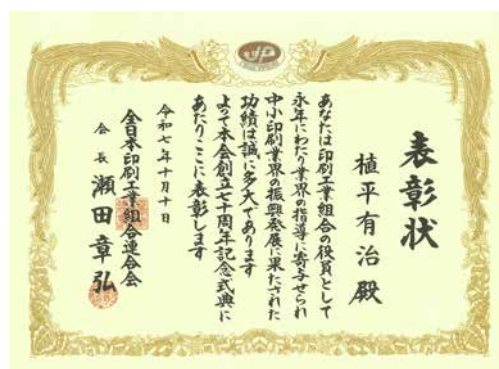 表彰状
植平有治殿
あなたは印刷工業組合の役員として
永年にわたり業界の指導に寄与せられ
中小印刷業界の振興発展に果たされた
功績は誠に多大であります
よって本会創立七十周年記念式典に
あたりここに表彰します
令和七年十月十日
全日本印刷工業組合連合会
会長 瀬田章弘